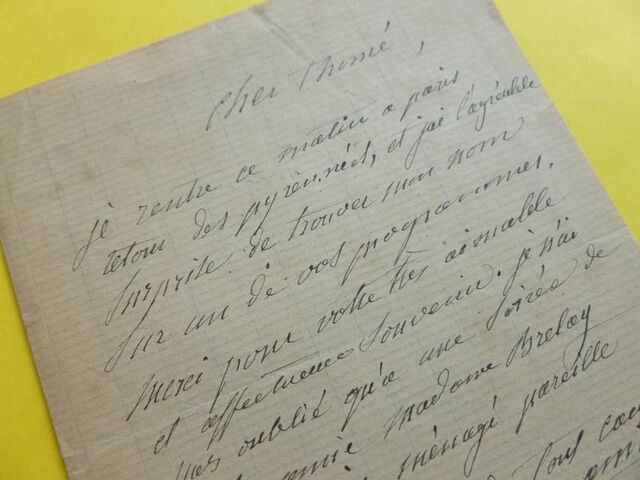 cher thomé,
je rentre ce matin a paris
retour des pyrennées, et jai l'agréable
surprise de trouver mon nom
sur un de vos programmes.
merci pour votre très aimable
et affectueux souvenir. je n'ai
pas oublié qu'a une soirée de
amie madame Breloy
ménagé pareille
tous